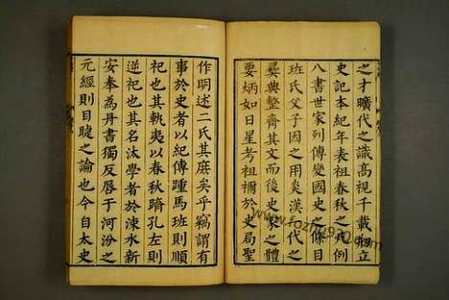 之才曠代之識高視千載創立
史記本紀年表祖春秋之凡例
八書世家列傳變國史之條目
班氏父子因之用炎漢一代之
彝典整齊其文而後史家之體
要炳如日星考祖禰於史局聖
作明述二氏其庶矣乎竊謂有
事於史者以紀傳踵馬班則順
祀也其軌夷以春秋躋孔左則
逆祀也其名汰學者於涑水新
安奉為丹書獨反唇于河汾之
元經則目睫之論也今自太史